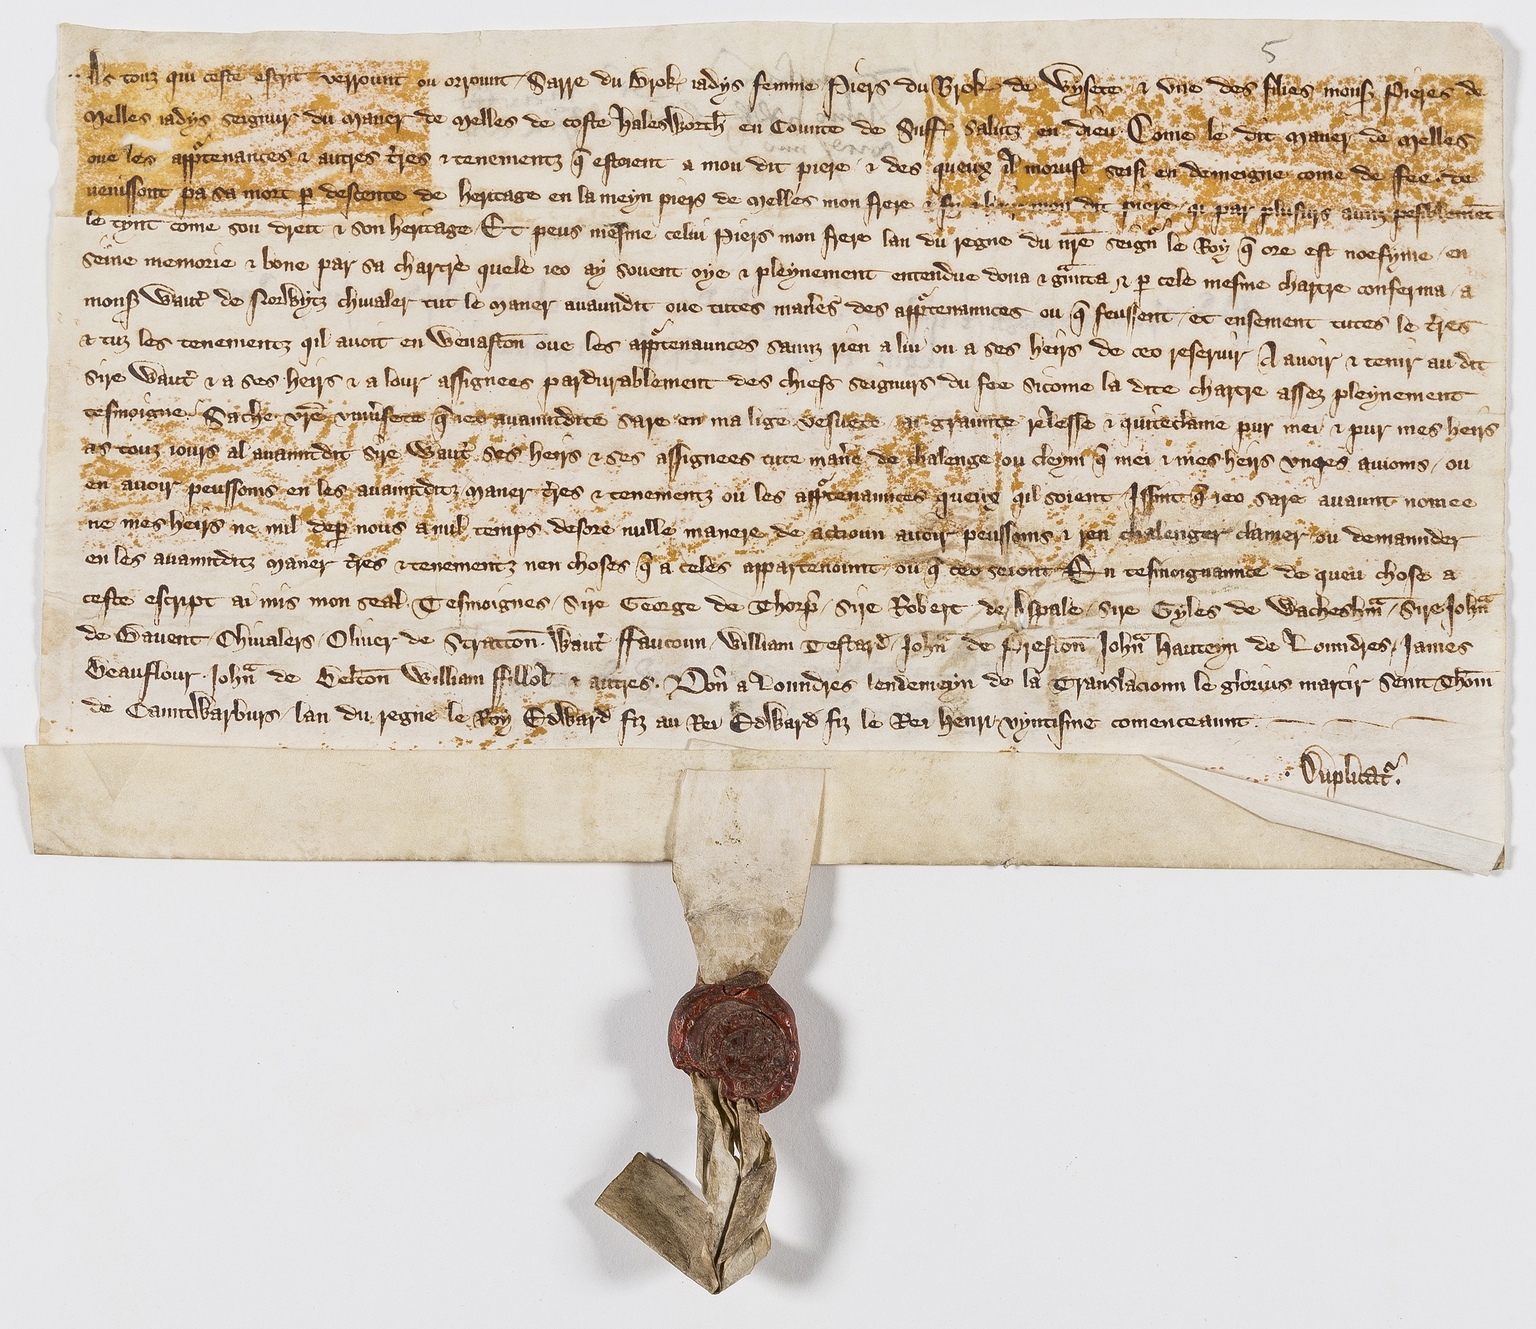 5
As touz qui ceste escrit verrount ou orrount Sarre du Brok iadys femme Piers du Brok de Wysete & une des filies mounſ Pieres de
Melles iadys seignur du Maner de Melles de coste Halesworth en Counte de Suff Salutz en dieu Come le dit Maner de Melles
oue les app'tenances & autres t'res & tenementz q̄ estoient a mon dit piere & des queux il morust seisi en demeigne come de fee te
venissont pa sa mort p descente de heritage en la meyn piers de Melles mon frere & mon dit piere qi par plusurs aunz pesiblement
le tynt come son dreit & son heritage Et peus mesme celui Piers mon frere lan du regne du nr̄e seign' le Roy q̄ ore est noefyme en
seine memorie & bone par sa chartre quele ieo ay sovent oye & pleynement entendue dona & g'nta & p cele mesme chartre conferma a
mounſ Waut' de Norwytz chivaler tut le Maner avaundit oue tutes man'es des app'tenaunces ou q̄ feussent et ensement tutes le t'res
& tuz les tenementz qil avoit en Wenaston oue les app'tenaunces saunz rien a lui ou a ses heirs de ceo reservir A avoir & tenir au dit
Sire Waut' & a ses heirs & a lour assignees pardurablement des chiefs seignurs du fee sicome la dite chartre assez pleynement
tesmoigne Sache vr̄e univ'sete q̄ ieo avauntdite Sare en ma lige vesuete ai graunte relesse & quiteclame pur mei & pur mes heirs
as touz iours al avauntdit Sire Waut' ses heirs & ses assignees tute man'e de chalenge ou cleym q̄ mei & mes heirs unqes avioms ou
en avoir peussoms en les avauntditz Maner t'res & tenementz ou les app'tenaunces queux qil soient Issint q̄ ieo Sare avaunt nomee
ne mes heirs ne nul dep nous a nul temps desore nulle manere de accioun avoir peussoms & ren chalenger clamer ou demaunder
en les avauntditz Maner t'res & tenementz nen choses q̄ a celes appartenount ou q̄ ceo seiont En tesmoignaunte de queu chose a
ceste escript ai mis mon seal Tesmoignes Sire George de Thorp Sire Robert de Aspale Sire Gyles de Wachesham Sire Joh'n
de Gavent Chivalers Oliver de Stratton Waut' ffaucoun William Testard Joh'n de Preston Joh'n Hauteyn de Loundres James
Beauflour Joh'n de Belton William ffillol & autres Don a Loundres lendemeyn de la Translacioun le glorius martir Seint Thom
de Cauntwarburs lan du regne le Roy Edward fiz au Rei Edward fiz le Rei Henri vyntisme comenceaunt
Duplicat'